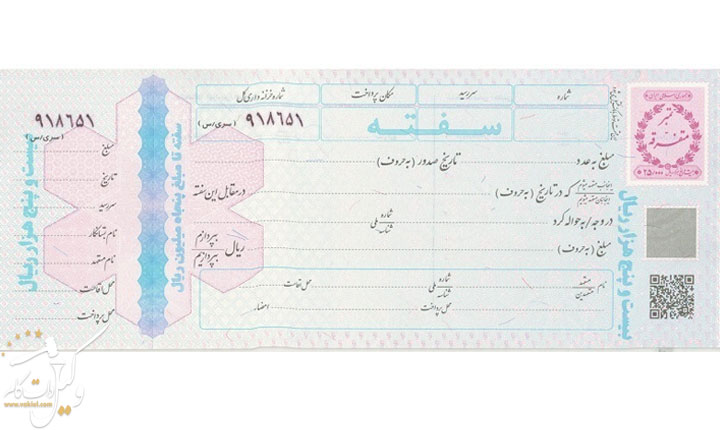 شماره
سررسید
مکان پرداخت
شماره خزانه داری کل
سفته
۹۱۸۶۵۱
(سری/س)
مبلغ به عدد
تاریخ صدور (به حروف)
در مقابل این سفته
که در تاریخ (به حروف)
در وجه/به حواله کرد
شماره ملی
شناسه
مبلغ (به حروف)
ریال
بپردازم
بپردازیم
نام
متعهد
متعهدین
شماره ملی
شناسه
محل اقامت
محل پرداخت
امضاء
جمهوری اسلامی ایران
تمبر
متفرقه
۲۵/۰۰۰ ریال
بیست و پنج هزار ریال
سفته تا مبلغ پنجاه میلیون ریال
۹۱۸۶۵۱
(سری/س)
مبلغ
تاریخ
سررسید
نام بستانکار
نام متعهد
محل اقامت
محل پرداخت
بیست و پنج هزار ریال
www.vakiel.com